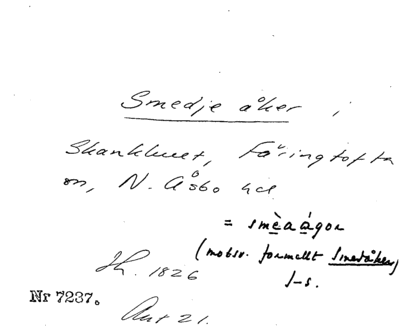 Smedje åker i
Skankhuet, Färingtofta
sn, N. Åsbo hd
= smèaágor
(motsv. formellt Smedåker)
J-s.
Sk. 1826
Nr 7237.
Akt 21.